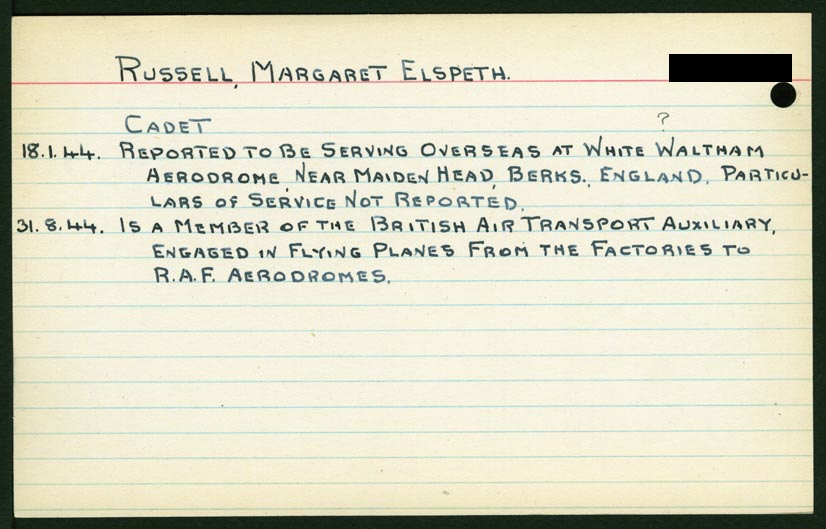 RUSSELL, MARGARET ELSPETH.
CADET ?
18.1.44. REPORTED TO BE SERVING OVERSEAS AT WHITE WALTHAM
AERODROME, NEAR MAIDEN HEAD, BERKS., ENGLAND, PARTICU-
LARS OF SERVICE NOT REPORTED.
31.8.44. IS A MEMBER OF THE BRITISH AIR TRANSPORT AUXILIARY,
ENGAGED IN FLYING PLANES FROM THE FACTORIES TO
R.A.F. AERODROMES.